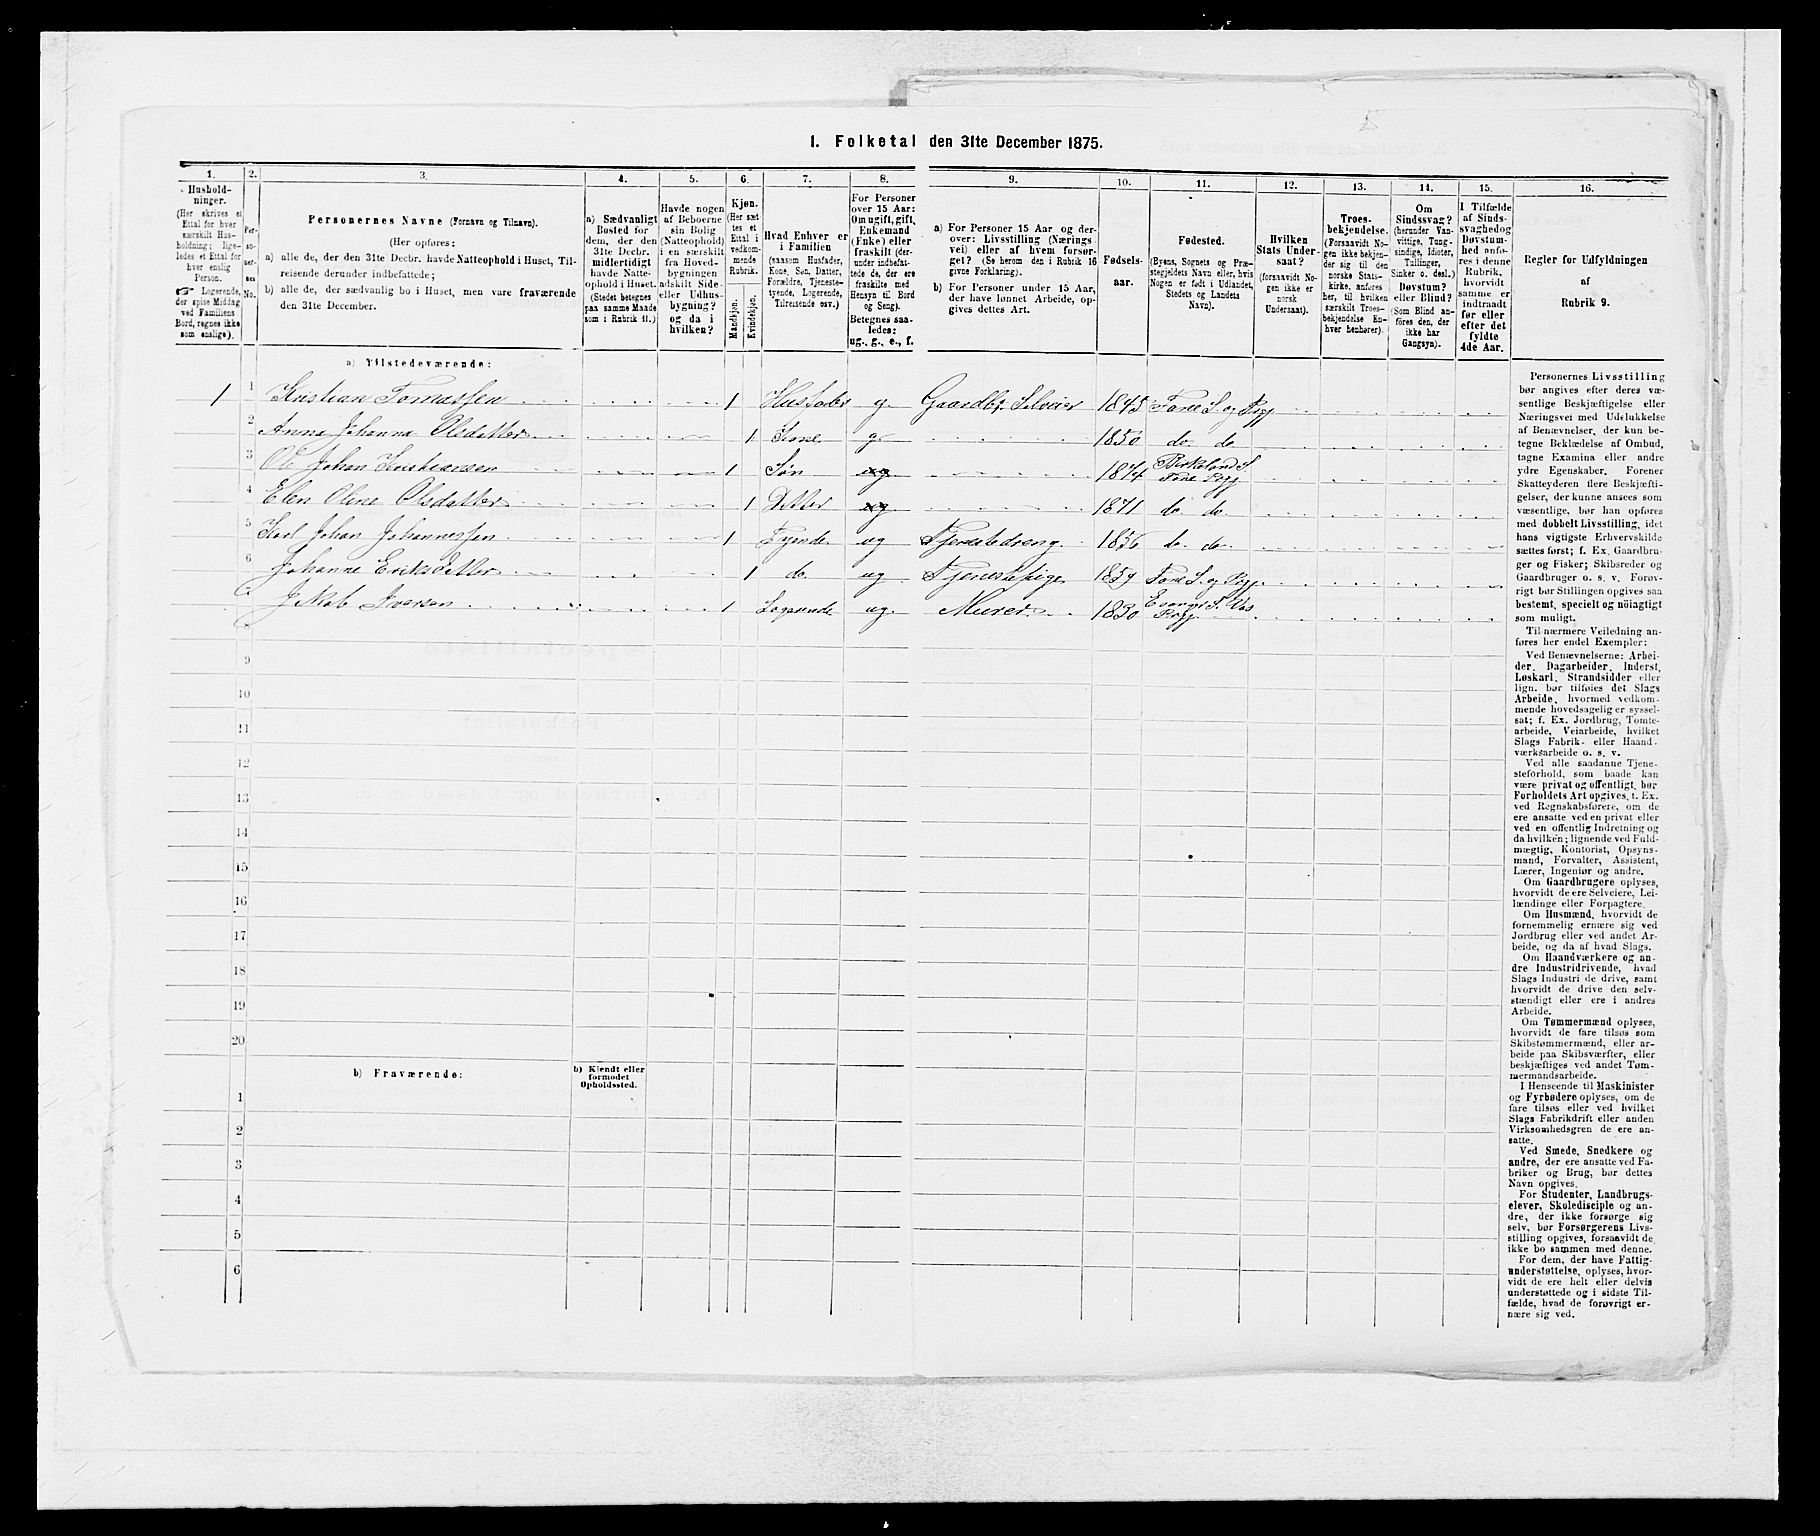 1. Folketal den 31te December 1875.
1. 2. 3. 4. 5. 6. 7. 8. 9. 10. 11. 12. 13. 14. 15. 16.
Hushold-
ninger.
(Her skrives et
Ettal for hver
særskilt Hus-
holdning; lige-
ledes et Ettal for
hver enslig
Person.
☞ Logerende,
der spise Middag
ved Familiens
Bord, regnes ikke
som enslige).
Per-
so-
ner-
nes
No.
Personernes Navne (Fornavn og Tilnavn).
(Her opføres:
a) alle de, der den 31te Decbr. havde Natteophold i Huset, Til-
reisende derunder indbefattede;
b) alle de, der sædvanlig bo i Huset, men vare fraværende
den 31te December.
a) Sædvanligt
Bosted for
dem, der den
31te Decbr.
midlertidigt
havde Natte-
ophold i Huset.
(Stedet betegnes
paa samme Maade
som i Rubrik 11.)
Havde nogen
af Beboerne
sin Bolig
(Natteophold)
i en særskilt
fra Hoved-
bygningen
adskilt Side-
eller Udhus-
bygning?
og da i
hvilken?
Kjøn.
(Her sæt-
tes et
Ettal i
vedkom-
mende
Rubrik.
Mandkjøn.
Kvindekjøn.
Hvad Enhver er
i Familien
(saasom Husfader,
Kone, Søn, Datter,
Forældre, Tjeneste-
tyende, Logerende,
Tilreisende osv.).
For Personer
over 15 Aar:
Om ugift, gift,
Enkemand
(Enke) eller
fraskilt (der-
under indbefat-
tede de, der ere
fraskilte med
Hensyn til Bord
og Seng).
Betegnes saa-
ledes:
ug., g., e., f.
a) For Personer 15 Aar og der-
over: Livsstilling (Nærings-
vei) eller af hvem forsør-
get? (Se herom den i Rubrik 16
givne Forklaring).
b) For Personer under 15 Aar,
der have lønnet Arbeide, op-
gives dettes Art.
Fødsels-
aar.
Fødested.
(Byens, Sognets og Præ-
stegjeldets Navn eller, hvis
Nogen er født i Udlandet,
Stedets og Landets
Navn).
Hvilken
Stats Under-
saat?
(forsaavidt No-
gen ikke er
norsk
Undersaat).
Troes-
bekjendelse.
(Forsaavidt No-
gen ikke bekjen-
der sig til den
norske Stats-
kirke, anføres
her, til hvilken
særskilt Troes-
bekjendelse En-
hver henhører).
Om
Sindssvag?
(herunder Van-
vittige, Tung-
sindige, Idioter,
Tullinger,
Sinker o. desl.)
Døvstum?
eller Blind?
(Som Blind an-
føres den, der
ikke har
Gangsyn).
I Tilfælde
af Sinds-
svaghed og
Døvstum-
hed anfø-
res i denne
Rubrik,
hvorvidt
samme er
indtraadt
før eller
efter det
fyldte
4de Aar.
Regler for Udfyldningen
af
Rubrik 9.
a) Tilstedeværende:
1 1 Kristian Tomassen 1 Husfader g. Gaardbr. Selveier 1845 Fane S. og Pregj
2 Anna Johanna Olsdatter 1 Kone g. 1850 do do
3 Ole Johan Kristiansen 1 Søn ug 1874 Birkeland S. Fane Pregj
4 Elen Oline Olsdatter 1 Datter ug 1871 do do
5 Karl Johan Johannessen 1 Tyende ug Tjenestedreng 1856 do do
6 Johanne Eriksdatter 1 do ug Tjenestepige 1854 Fane S. og Pregj.
Jakob Iversen 1 Logerende ug. Murer 1830 Evanger S. Vos Pregj.
9
10
11
12
13
14
15
16
17
18
19
20
b) Fraværende:
b) Kjendt eller
formodet
Opholdssted.
1
2
3
4
5
6
Personernes Livsstilling
bør angives efter deres væ-
sentlige Beskjæftigelse eller
Næringsvei med Udelukkelse
af Benævnelser, der kun be-
tegne Beklædelse af Ombud,
tagne Examina eller andre
ydre Egenskaber. Forener
Skatteyderen flere Beskjæfti-
gelser, der kunne ansees som
væsentlige, bør han opføres
med dobbelt Livsstilling, idet
hans vigtigste Erhvervskilde
sættes først; f. Ex. Gaardbru-
ger og Fisker; Skibsreder og
Gaardbruger o. s. v. Forøv-
rigt bør Stillingen opgives saa
bestemt, specielt og nøiagtigt
som muligt.
Til nærmere Veiledning an-
føres her endel Exempler:
Ved Benævnelserne: Arbei-
der, Dagarbeider, Inderst,
Løskarl, Strandsidder eller
lign. bør tilføies det Slags
Arbeide, hvormed vedkom-
mende hovedsagelig er syssel-
sat; f. Ex. Jordbrug, Tomte-
arbeide, Veiarbeide, hvilket
Slags Fabrik- eller Haand-
værksarbeide o. s. v.
Ved alle saadanne Tjene-
steforhold, som baade kan
være privat og offentligt, bør
Forholdets Art opgives, t. Ex.
ved Regnskabsførere, om de
ere ansatte ved en privat eller
ved en offentlig Indretning og
da hvilken; lignende ved Fuld-
mægtig, Kontorist, Opsyns-
mand, Forvalter, Assistent,
Lærer, Ingeniør og andre.
Om Gaardbrugere oplyses,
hvorvidt de ere Selveiere, Lei-
lændinge eller Forpagtere.
Om Husmænd, hvorvidt de
fornemmelig ernære sig ved
Jordbrug eller ved andet Ar-
beide, og da af hvad Slags.
Om Haandværkere og an-
dre Industridrivende, hvad
Slags Industri de drive, samt
hvorvidt de drive den selv-
stændigt eller ere i andres
Arbeide.
Om Tømmermænd oplyses,
hvorvidt de fare tilsøs som
Skibstømmermænd, eller ar-
beide paa Skibsværfter, eller
beskjæftiges ved andet Tøm-
mermandsarbeide.
I Henseende til Maskinister
og Fyrbødere oplyses, om de
fare tilsøs eller ved hvilket
Slags Fabrikdrift eller anden
Virksomhedsgren de ere an-
satte.
Ved Smede, Snedkere og
andre, der ere ansatte ved Fa-
briker og Brug, bør dettes
Navn opgives.
For Studenter, Landbrugs-
elever, Skoledisciple og an-
dre, der ikke forsørge sig
selv, bør Forsørgerens Livs-
stilling opgives, forsaavidt de
ikke bo sammen med denne.
For dem, der have Fattig-
understøttelse, oplyses, hvor-
vidt de ere helt eller delvis
understøttede og i sidste Til-
fælde, hvad de forøvrigt er-
nære sig ved.